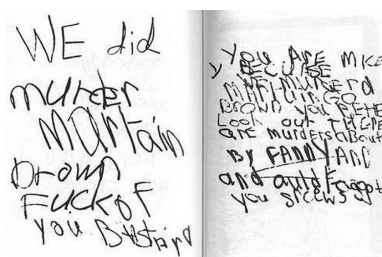 WE did
murder
martain
brown
Fuckof
you BAstard
you ArE micE
y BEcuSE
WE murderd
MArtain GO
Brown you BEttEr
Look out THErE
arE murders about
By FANNYAND
and auld Faggot
you Screws